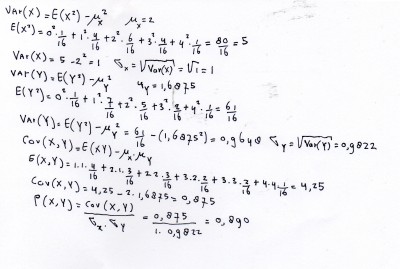 Var(X) = E(X²) - μₓ²   μₓ = 2
E(X²) = 0²·1/16 + 1²·4/16 + 2²·6/16 + 3²·4/16 + 4²·1/16 = 80/16 = 5
Var(X) = 5 - 2² = 1   σₓ = √Var(X) = √1 = 1
Var(Y) = E(Y²) - μ_Y²   μ_Y = 1,6875
E(Y²) = 0²·1/16 + 1²·7/16 + 2²·5/16 + 3²·2/16 + 4²·1/16 = 61/16
Var(Y) = E(Y²) - μ_Y² = 61/16 - (1,6875²) = 0,9648   σ_Y = √Var(Y) = 0,9822
Cov(X,Y) = E(XY) - μₓ·μ_Y
E(X,Y) = 1·1·4/16 + 2·1·3/16 + 2·2·3/16 + 3·2·2/16 + 3·3·2/16 + 4·4·1/16 = 4,25
Cov(X,Y) = 4,25 - 2·1,6875 = 0,875
ρ(X,Y) = Cov(X,Y)/σₓ·σ_Y = 0,875/1·0,9822 = 0,890